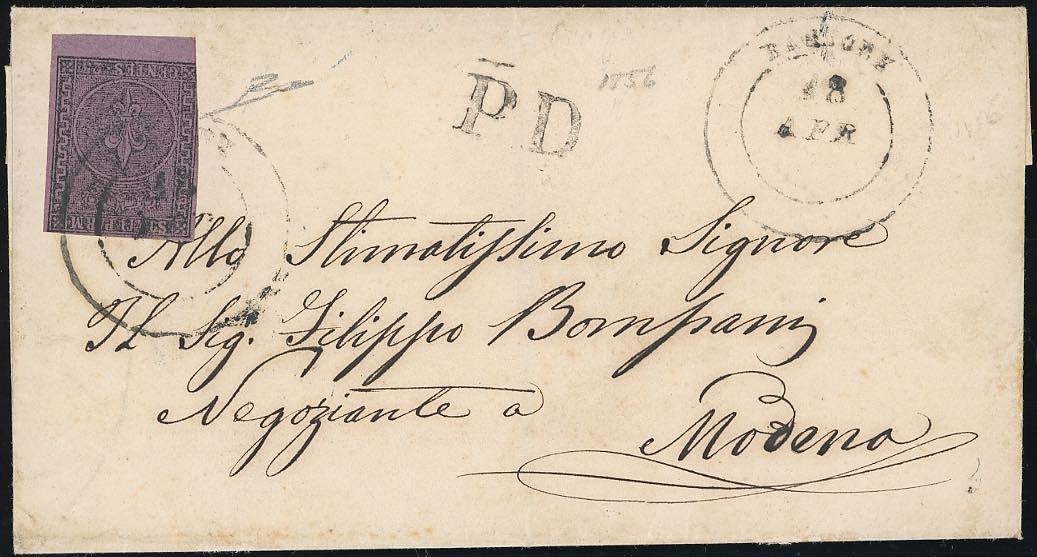 P.D
1856
18
APR
Allo Stimatissimo Signore
Il Sig. Filippo Bompani
Negoziante a
Modena